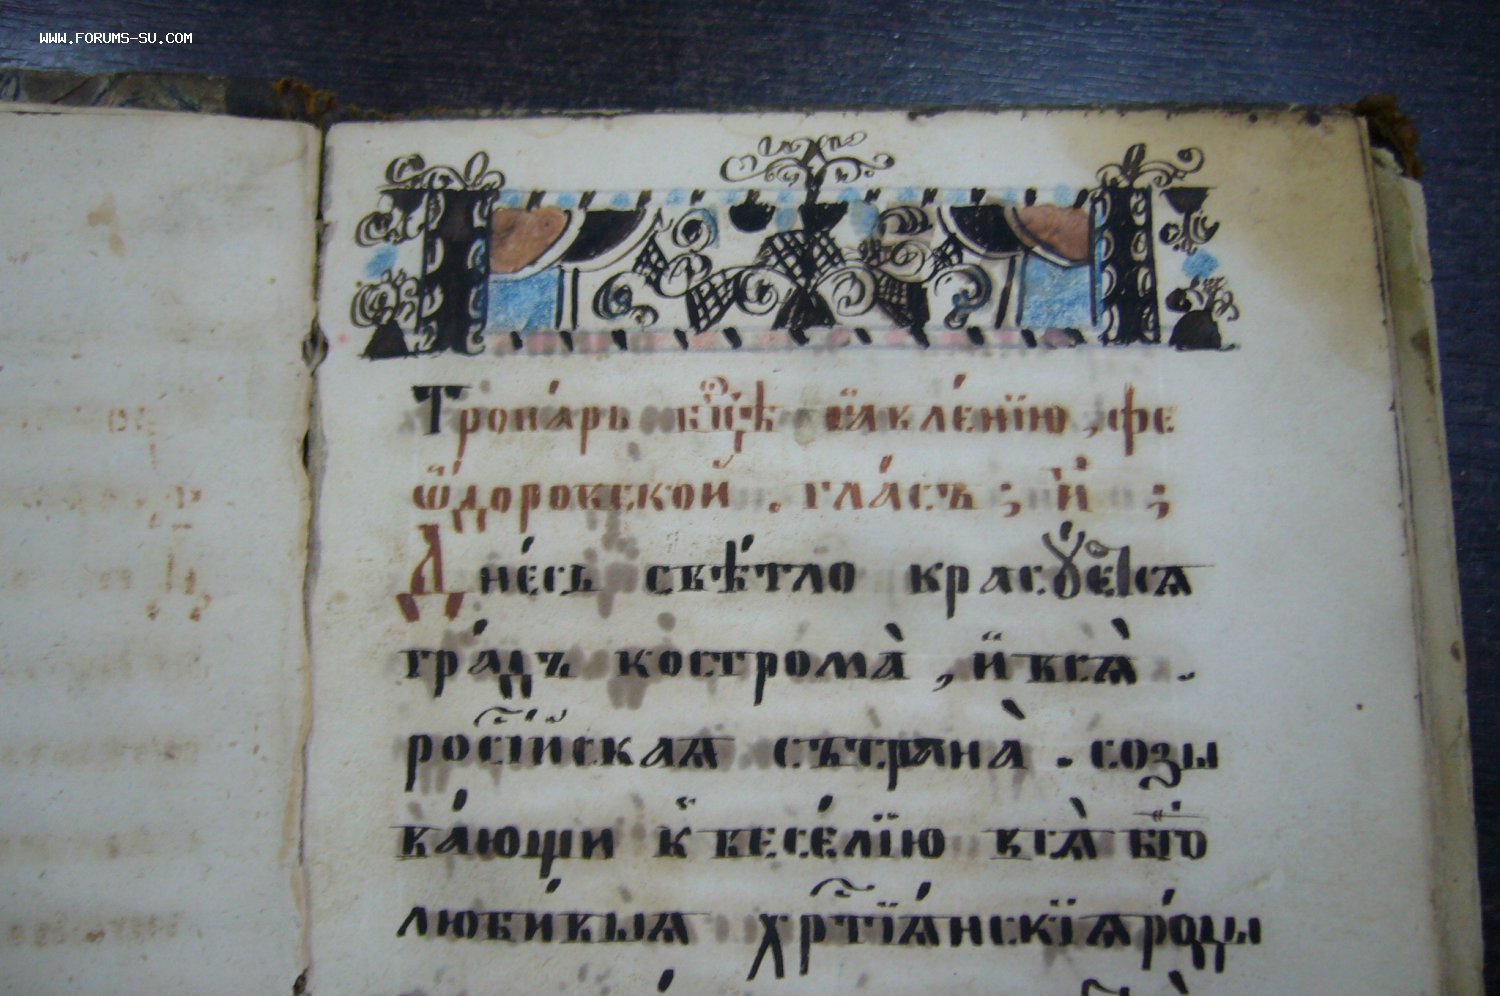 WWW.FORUMS-SU.COM
Тропа́рь бц҃ѣ ꙗ҆вле́нїю, фе
ѡ҆́доровской. гла́съ; и҃ ;
Дне́сь свѣ́тло красꙋ́етсѧ
гра́дъ кострома̀, и҆ всѧ̀.
росі́йскаѧ страна̀. созы
ва́ющи к̾ весе́лїю всѧ̀ бг҃о
люби́выѧ хрⷭ҇тїа́нскїѧ ро́ды